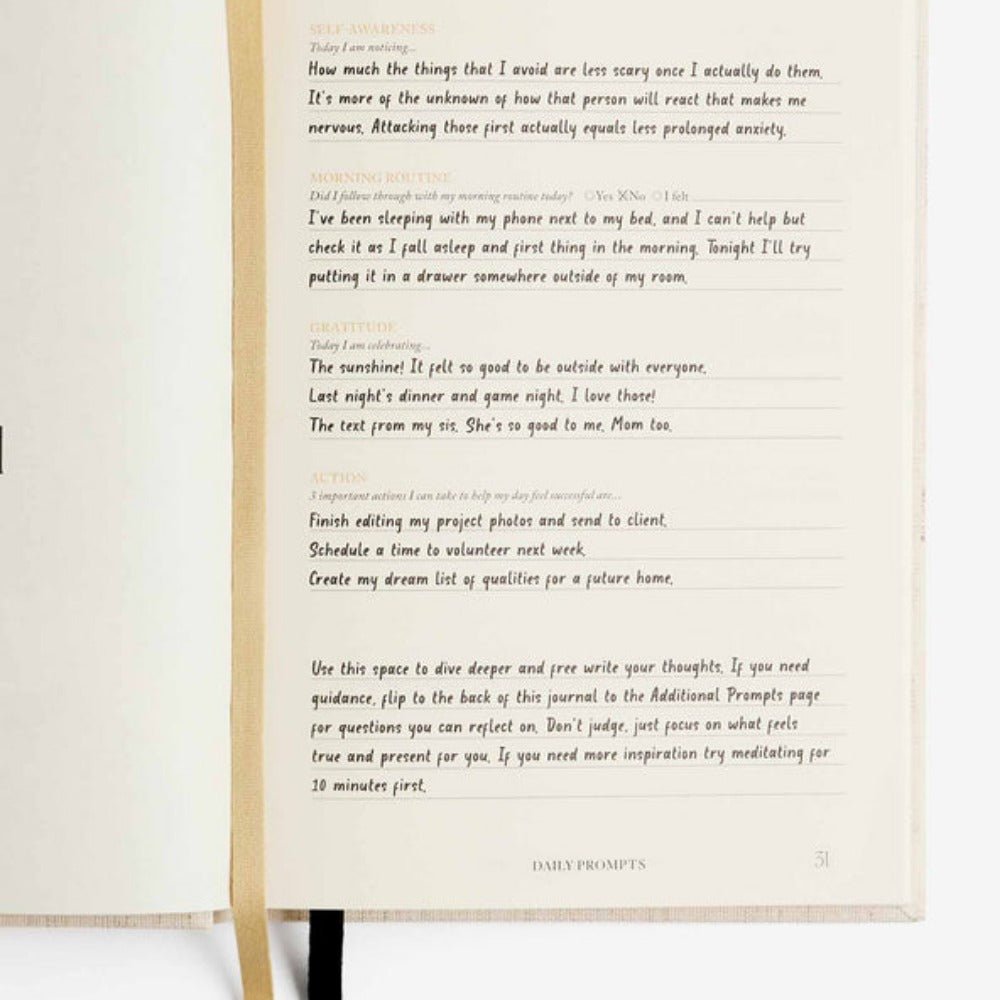 SELF-AWARENESS
Today I am noticing...
How much the things that I avoid are less scary once I actually do them.
It's more of the unknown of how that person will react that makes me
nervous. Attacking those first actually equals less prolonged anxiety.
MORNING ROUTINE
Did I follow through with my morning routine today? Yes No I felt
I've been sleeping with my phone next to my bed, and I can't help but
check it as I fall asleep and first thing in the morning. Tonight I'll try
putting it in a drawer somewhere outside of my room.
GRATITUDE
Today I am celebrating...
The sunshine! It felt so good to be outside with everyone.
Last night's dinner and game night. I love those!
The text from my sis. She's so good to me. Mom too.
ACTION
3 important actions I can take to help my day feel successful are...
Finish editing my project photos and send to client.
Schedule a time to volunteer next week.
Create my dream list of qualities for a future home.
Use this space to dive deeper and free write your thoughts. If you need
guidance, flip to the back of this journal to the Additional Prompts page
for questions you can reflect on. Don't judge, just focus on what feels
true and present for you. If you need more inspiration try meditating for
10 minutes first.
DAILY PROMPTS
31